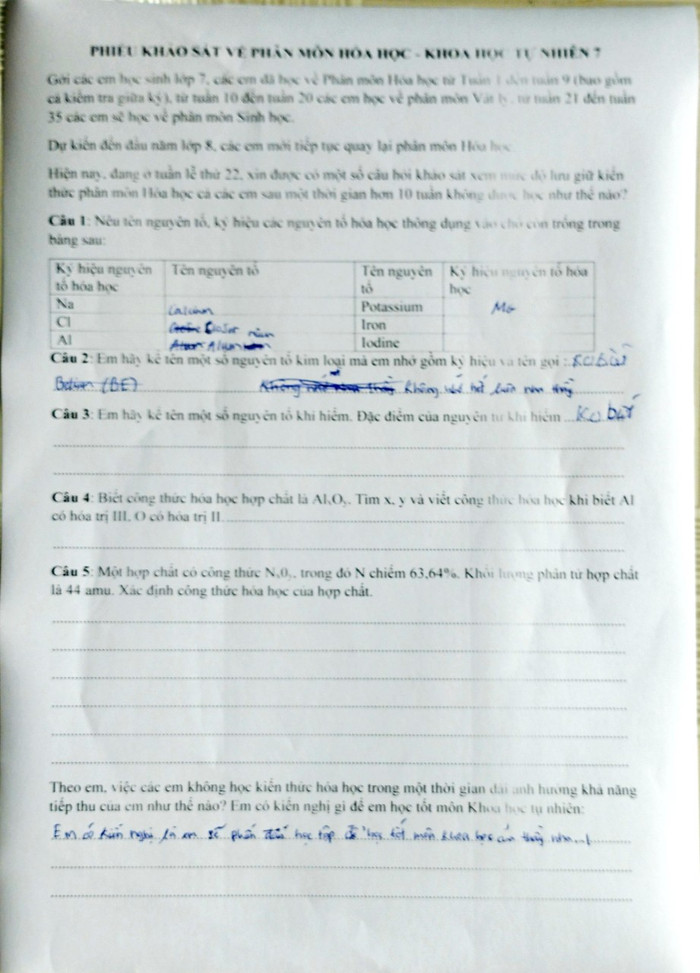 PHIẾU KHẢO SÁT VỀ PHÂN MÔN HÓA HỌC - KHOA HỌC TỰ NHIÊN 7
Gởi các em học sinh lớp 7, các em đã học về Phân môn Hóa học từ Tuần 1 đến tuần 9 (bao gồm
cả kiểm tra giữa kỳ), từ tuần 10 đến tuần 20 các em học về phân môn Vật lý, từ tuần 21 đến tuần
35 các em sẽ học về phân môn Sinh học.
Dự kiến đến đầu năm lớp 8, các em mới tiếp tục quay lại phân môn Hóa học.
Hiện nay, đang ở tuần lễ thứ 22, xin được có một số câu hỏi khảo sát xem mức độ lưu giữ kiến
thức phân môn Hóa học cả các em sau một thời gian hơn 10 tuần không được học như thế nào?
Câu 1: Nêu tên nguyên tố, ký hiệu các nguyên tố hóa học thông dụng vào chỗ còn trống trong
bảng sau:
Ký hiệu nguyên tố hóa học Tên nguyên tố Tên nguyên tố Ký hiệu nguyên tố hóa học
Na Potassium Mg
Cl Iron
Al Iodine
Câu 2: Em hãy kể tên một số nguyên tố kim loại mà em nhớ gồm ký hiệu và tên gọi :
(BE) Không
Câu 3: Em hãy kể tên một số nguyên tố khí hiếm. Đặc điểm của nguyên tử khí hiếm ... Ko biết
Câu 4: Biết công thức hóa học hợp chất là AlxOy. Tìm x, y và viết công thức hóa học khi biết Al
có hóa trị III, O có hóa trị II.
Câu 5: Một hợp chất có công thức NxOy, trong đó N chiếm 63,64%. Khối lượng phân tử hợp chất
là 44 amu. Xác định công thức hóa học của hợp chất.
Theo em, việc các em không học kiến thức hóa học trong một thời gian dài ảnh hưởng khả năng
tiếp thu của em như thế nào? Em có kiến nghị gì để em học tốt môn Khoa học tự nhiên:
Em có kiến nghị là em sẽ phấn đấu học tập để học tốt môn khoa học